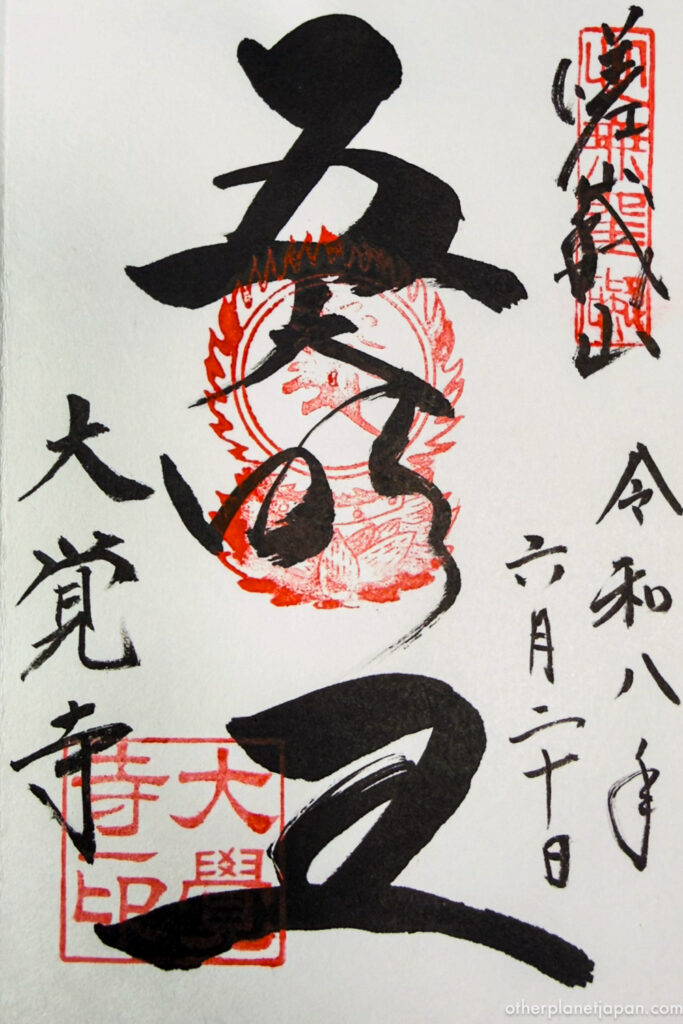 嵯峨山
令和八年
六月二十日
五大明王
大覚寺
大覺
寺印
otherplanetjapan.com